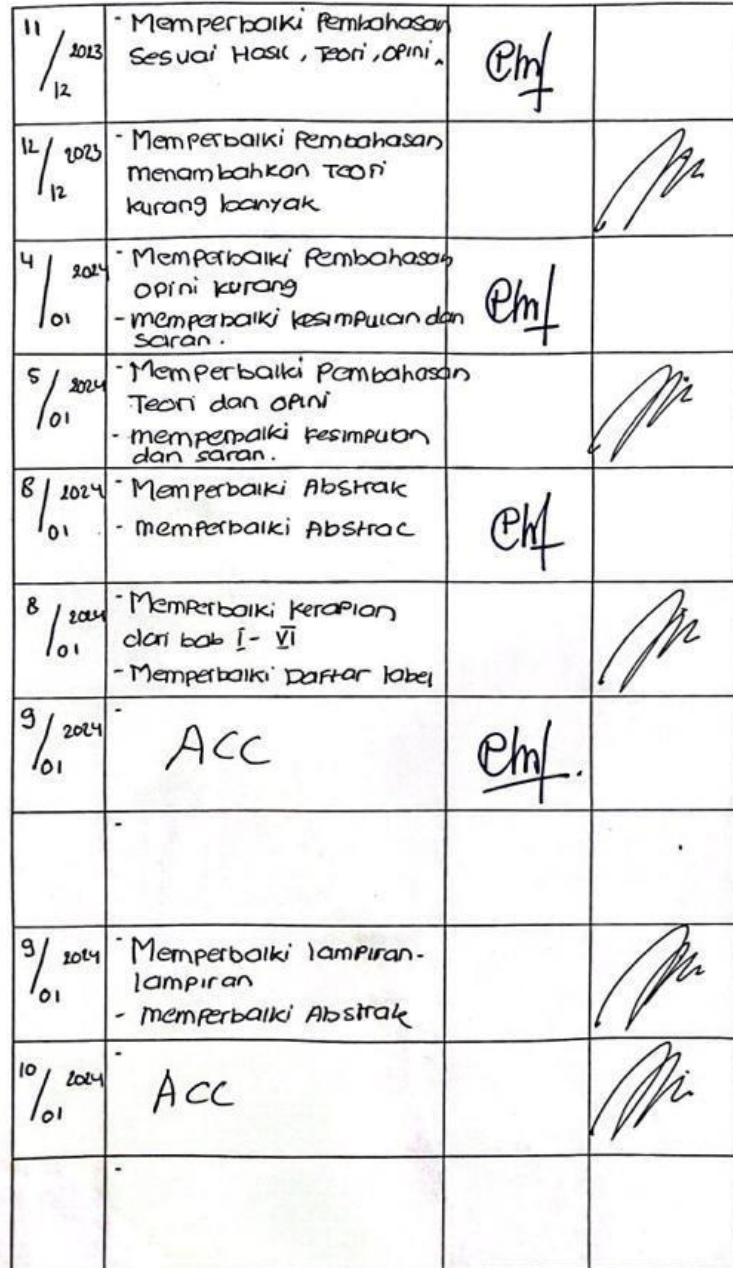 11/12 2023
- Memperbaiki Pembahasan
Sesuai Hasil, Teori, opini.
12/12 2023
- Memperbaiki Pembahasan
menambahkan Teori
kurang banyak
4/01 2024
- Memperbaiki Pembahasan
opini kurang
- memperbaiki kesimpulan dan
saran.
5/01 2024
- Memperbaiki Pembahasan
Teori dan opini
- memperbaiki kesimpulan
dan saran.
8/01 2024
- Memperbaiki Abstrak
- memperbaiki Abstrac
8/01 2024
- Memperbaiki kerapian
dari bab I - VI
- Memperbaiki Daftar label
9/01 2024
-
ACC
-
9/01 2024
- Memperbaiki lampiran-
lampiran
- memperbaiki Abstrak
10/01 2024
-
ACC
-